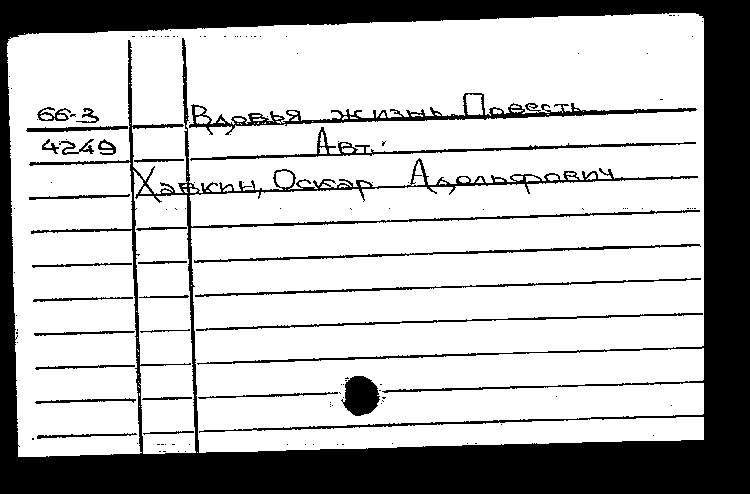 66-3 Вдовья жизнь. Повесть
4249 Авт.:
Хавкин, Оскар Адольфович